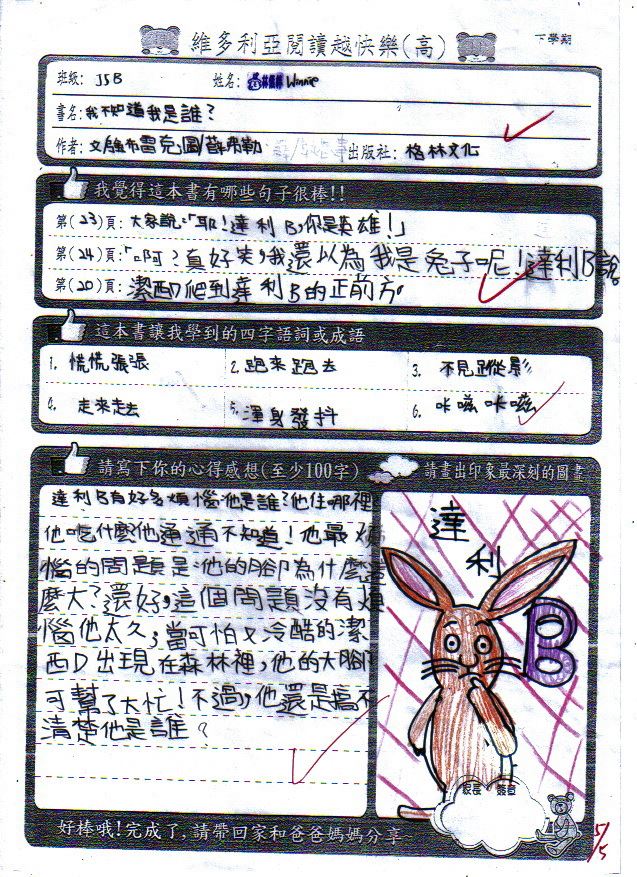 維多利亞閱讀越快樂(高)
下學期
班級: J5B 姓名: Winnie
書名: 我不知道我是誰?
作者: 文/強布雷克,圖/薛弗勒 出版社: 格林文化
我覺得這本書有哪些句子很棒!!
第(23)頁: 大家說:「耶!達利B,你是英雄!」
第(24)頁:「啊?真好笑,我還以為我是兔子呢!達利B說。
第(20)頁: 潔西D爬到達利B的正前方。
這本書讓我學到的四字語詞或成語
1. 慌慌張張 2. 跑來跑去 3. 不見蹤影
4. 走來走去 5. 渾身發抖 6. 咔嗞咔嗞
請寫下你的心得感想(至少100字)
請畫出印象最深刻的圖畫
達利B有好多煩惱他是誰?他住哪裡
他吃什麼他通通不知道!他最煩
惱的問題是:他的腳為什麼這
麼大?還好,這個問題沒有煩
惱他太久,當可怕又冷酷的潔
西D出現在森林裡,他的大腳
可幫了大忙!不過,他還是搞不
清楚他是誰?
達利
B
家長 簽章
好棒哦!完成了,請帶回家和爸爸媽媽分享
5/5